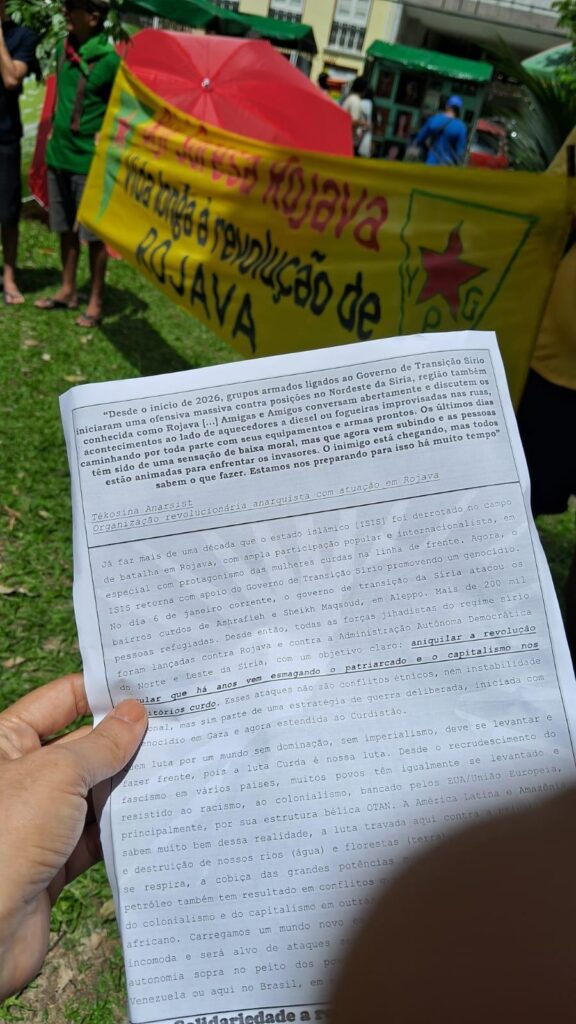 Rojava
Vida longa à revolução de
ROJAVA
Y
P
G
"Desde o inicio de 2026, grupos armados ligados ao Governo de Transição Sirio
iniciaram uma ofensiva massiva contra posições no Nordeste da Síria, região também
conhecida como Rojava [...] Amigas e Amigos conversam abertamente e discutem os
acontecimentos ao lado de aquecedores a diesel ou fogueiras improvisadas nas ruas,
caminhando por toda parte com seus equipamentos e armas prontos. Os últimos dias
têm sido de uma sensação de baixa moral, mas que agora vem subindo e as pessoas
estão animadas para enfrentar os invasores. O inimigo está chegando, mas todos
sabem o que fazer. Estamos nos preparando para isso há muito tempo"
Tékosina Anarsist
Organização revolucionária anarquista com atuação em Rojava
Já faz mais de uma década que o estado islâmico [ISIS] foi derrotado no campo
de batalha em Rojava, com ampla participação popular e internacionalista, em
especial com protagonismo das mulheres curdas na linha de frente. Agora, o
ISIS retorna com apoio do Governo de Transição Sírio promovendo um genocídio.
No dia 6 de janeiro corrente, o governo de transição da Síria atacou os
bairros curdos de Ashrafieh e Sheikh Maqsoud, em Aleppo. Mais de 200 mil
pessoas refugiadas. Desde então, todas as forças jihadistas do regime sírio
foram lançadas contra Rojava e contra a Administração Autônoma Democrática
do Norte e Leste da Síria, com um objetivo claro: aniquilar a revolução
que há anos vem esmagando o patriarcado e o capitalismo nos
curdo. Esses ataques não são conflitos étnicos, nem instabilidade
mas sim parte de uma estratégia de guerra deliberada, iniciada com
genocídio em Gaza e agora estendida ao Curdistão.
luta por um mundo sem dominação, sem imperialismo, deve se levantar e
fazer frente, pois a luta Curda é nossa luta. Desde o recrudescimento do
fascismo em vários países, muitos povos têm igualmente se levantado e
resistido ao racismo, ao colonialismo, bancado pelos EUA/União Europeia,
principalmente, por sua estrutura bélica OTAN. A América Latina e Amazônia
sabem muito bem dessa realidade, a luta travada aqui contra a
e destruição de nossos rios (água) e florestas
se respira, a cobiça das grandes potências
petróleo também tem resultado em conflitos
do colonialismo e do capitalismo em outras
africano. Carregamos um mundo novo
incomoda e será alvo de ataques
autonomia sopra no peito dos
Venezuela ou aqui no Brasil, em
Solidariedade a